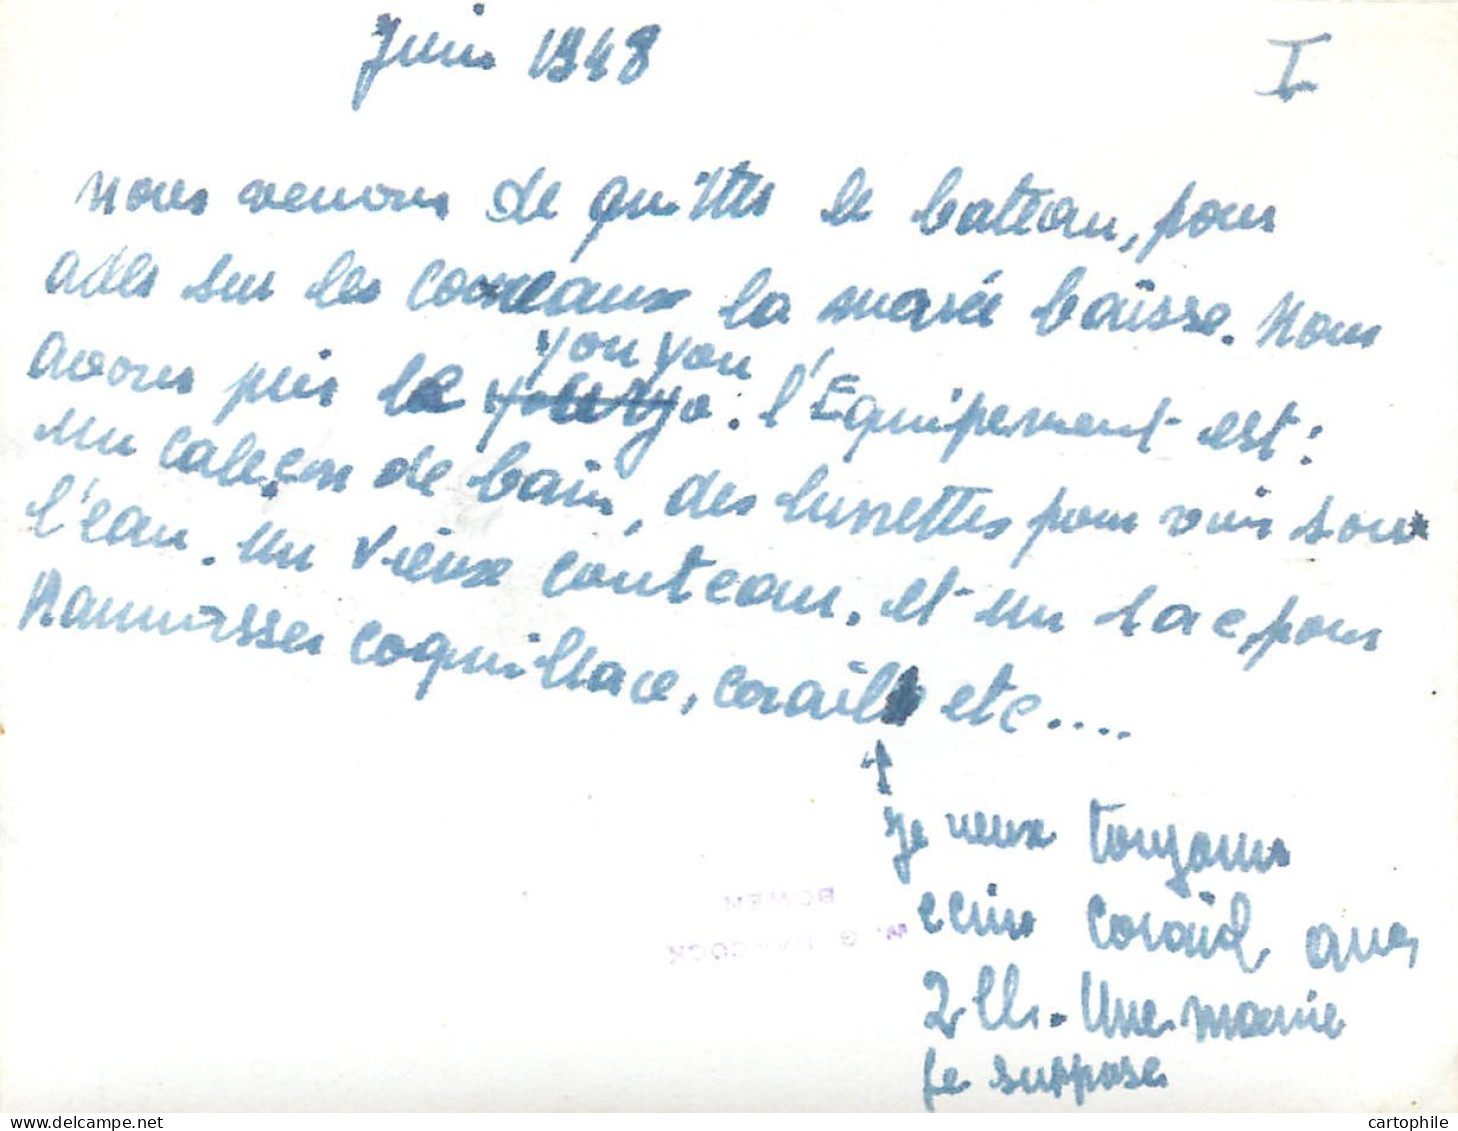 Juin 1948
I
Nous venons de quitter le bateau, pour
aller sur les coreaux la marée baisse. Nous
you you
avons pris le youryo. l'Equipement est :
un caleçon de bain, des lunettes pour voir sous
l'eau. un vieux couteau. et un sac, pour
Rammasser coquillace, corail etc....
je veux toujours
ecrire corail avec
2 LL. Une manie
je suppose
BOWEN
W. G. HANCOCK
cartophile